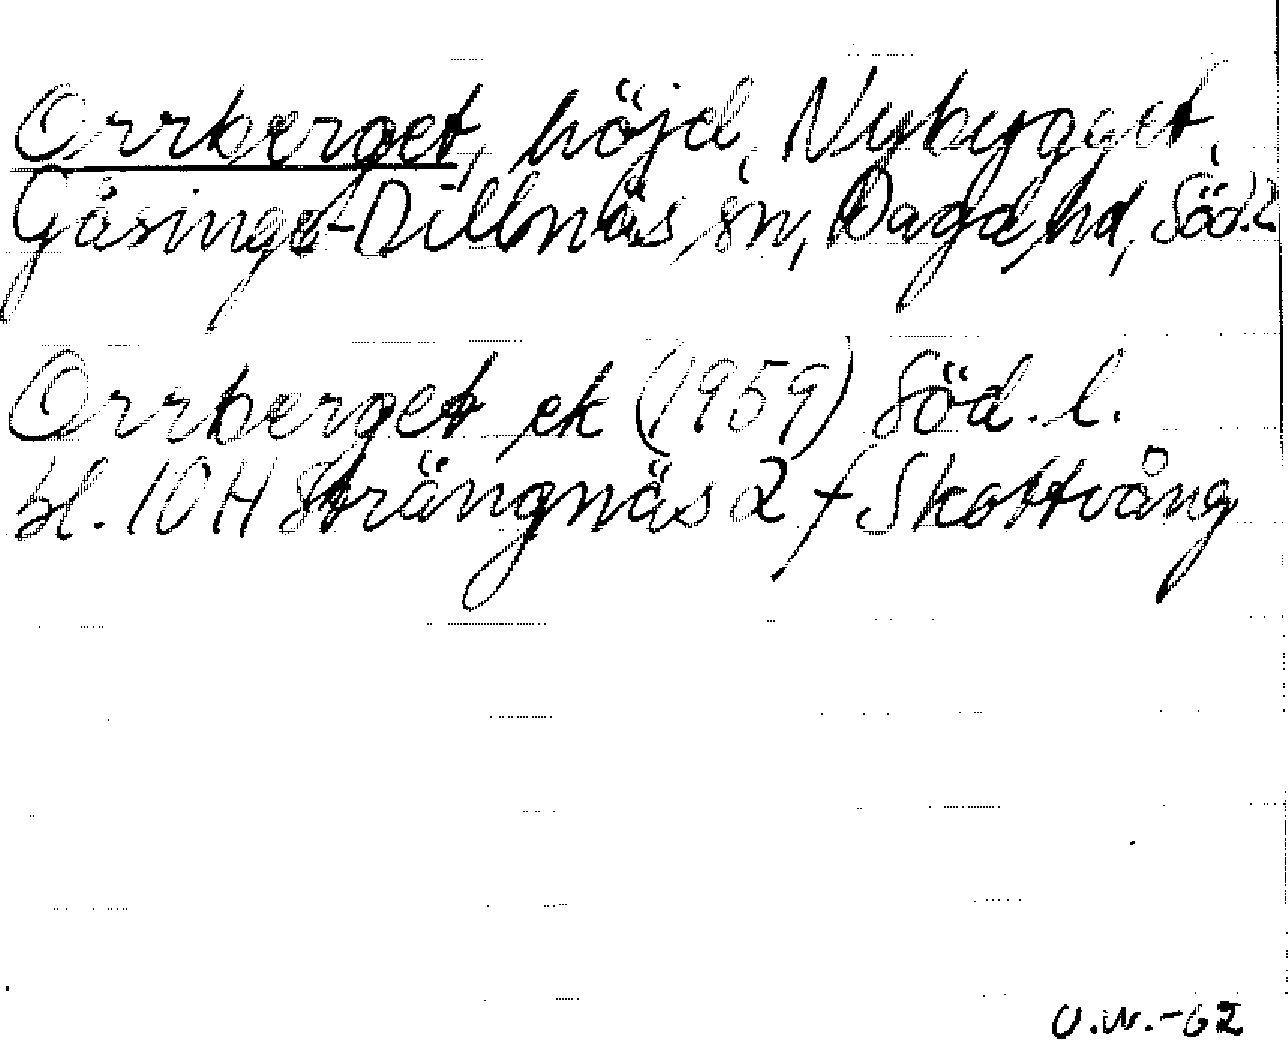 Orrberget, höjd, Nybygget,
Gåsinge-Dillnäs sn, Daga hd, Söd.l.
Orrberget ek (1959) Söd. l.
bl. 10H Strängnäs 2 f Skottvång
U.W.-62